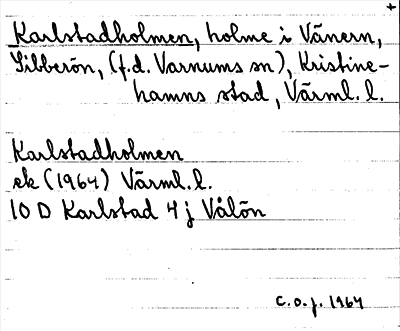 +
Karlstadholmen, holme i Vänern,
Sibberön, (f.d. Varnums sn), Kristine-
hamns stad, Värml. l.
Karlstadholmen
ek (1964) Värml. l.
10 D Karlstad 4 j Vålön
C. O. J. 1964